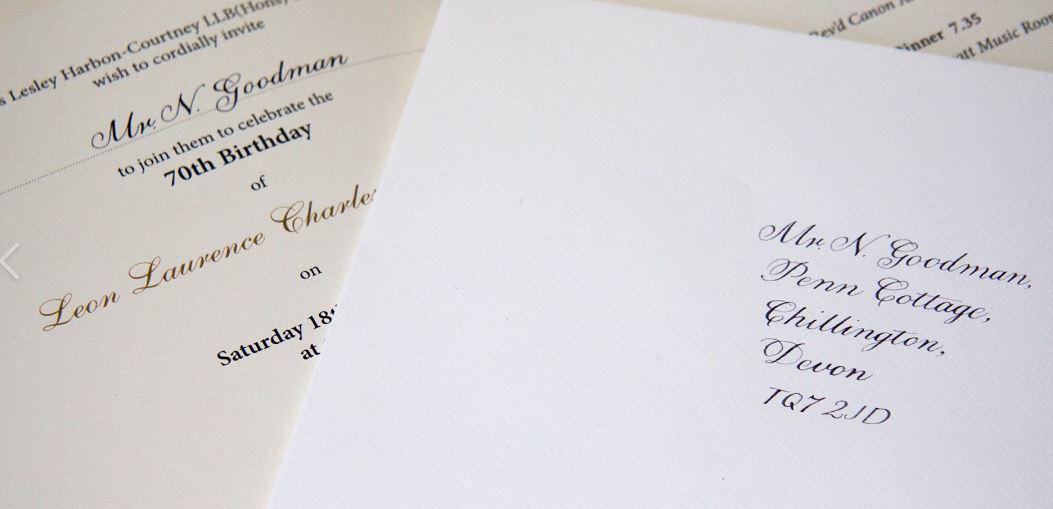 Lesley Harbon-Courtney LLB(Hons)
wish to cordially invite
Mr. N. Goodman
to join them to celebrate the
70th Birthday
of
Leon Laurence Charles
on
Saturday 18
at
Rev'd Canon
Dinner 7.35
Music Room
Mr. N. Goodman,
Penn Cottage,
Chillington,
Devon
TQ7 2JD